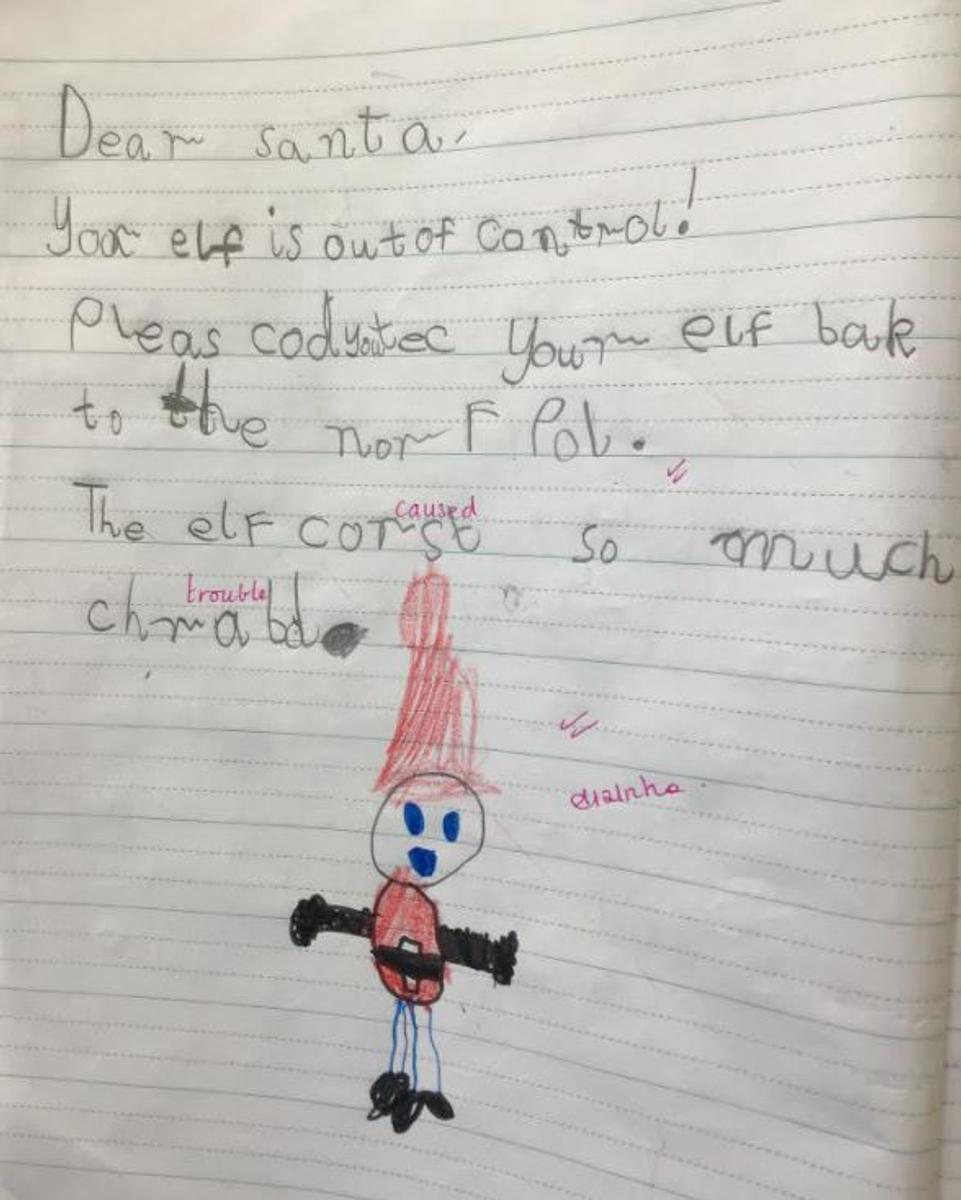 Dear santa,
Yoor elf is out of control!
Pleas codyoutec Your elf bak
to the norF Pol.
caused
The elF corst so much
trouble
chrabd.